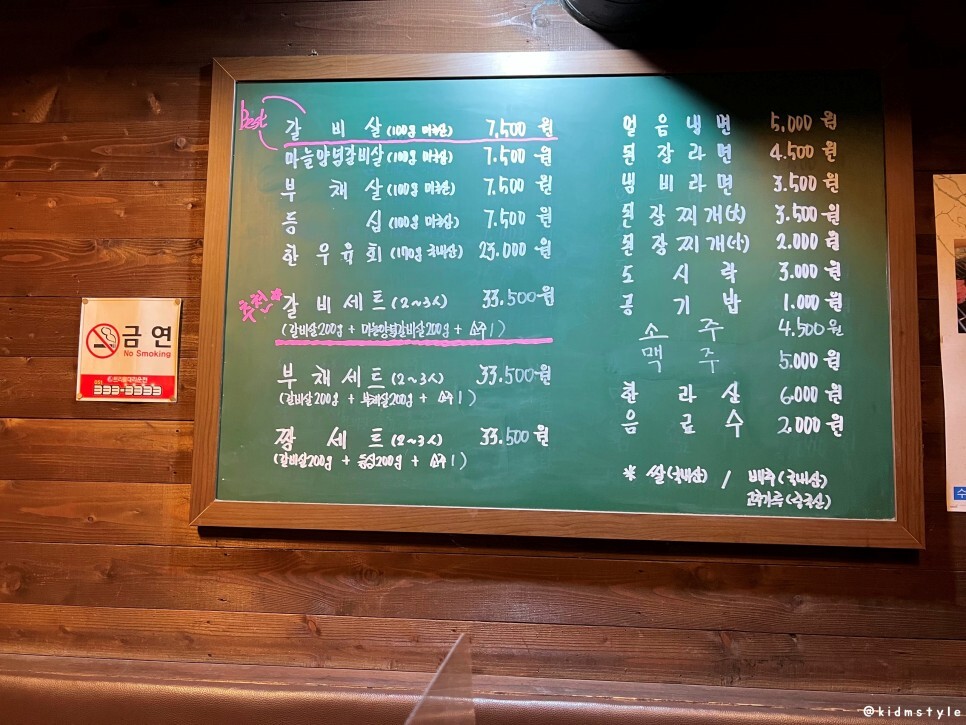 Best
갈비살(100g 미국산) 7,500원
마늘양념갈비살(100g 미국산) 7.500원
부채살(100g 미국산) 7.500원
등심(100g 미국산) 7,500원
한우육회(170g 국내산) 25.000원
추천☆
갈비세트(2~3人) 33.500원
(갈비살200g + 마늘양념갈비살200g + 소주1)
부채세트(2~3人) 33.500원
(갈비살200g + 부채살200g + 소주1)
짱세트(2~3人) 33.500원
(갈비살200g + 등심200g + 소주1)
얼음냉면 5,000원
된장라면 4.500원
냄비라면 3.500원
된장찌개(大) 3.500원
된장찌개(小) 2.000원
도시락 3.000원
공기밥 1.000원
소주 4.500원
맥주 5.000원
한라산 6.000원
음료수 2,000원
* 쌀(국내산) / 배추(국내산)
고추가루(중국산)
금연
No Smoking
333-3333
수
@kidmstyle